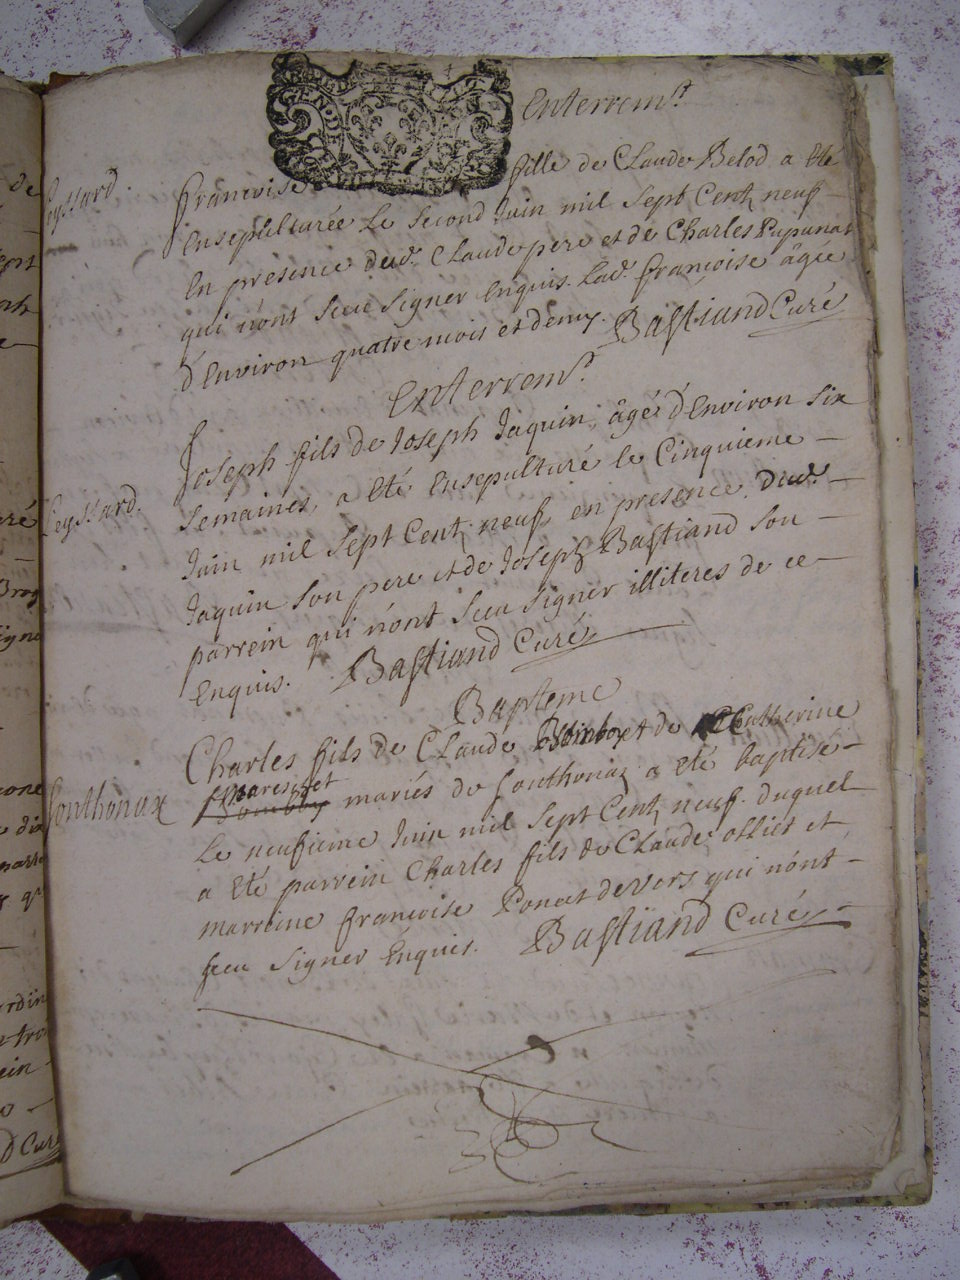 Enterrem.t
Leyssard.
françoise fille de Claude Belod a ete
ensepulturée Le second Juin mil sept Cent neuf
En presence dud. Claude pere et de Charles Papunat
qui n'ont sceu signer enquis. Lad. françoise âgée
d'Environ quatre mois et demy. Bastiand Curé
Enterrem.t
Leyssard.
Joseph fils de Joseph Jaquin, âgé d'Environ six
semaines, a Eté Ensepulturé le Cinquieme
Juin mil sept Cent neuf, en presence, dud.
Jaquin son pere et de Joseph Bastiand son
parrein qui n'ont sceu signer illiteres de ce
Enquis. Bastiand Curé
Bapteme
Charles fils de Claude et de Catherine
Sonthonax
mariés de Sonthonaz a eté baptisé
Le neufieme Juin mil sept Cent neuf. duquel
a Eté parrein Charles fils de Claude ollier et
marreine françoise Poncet de Vers qui n'ont
sceu signer Enquis. Bastiand Curé